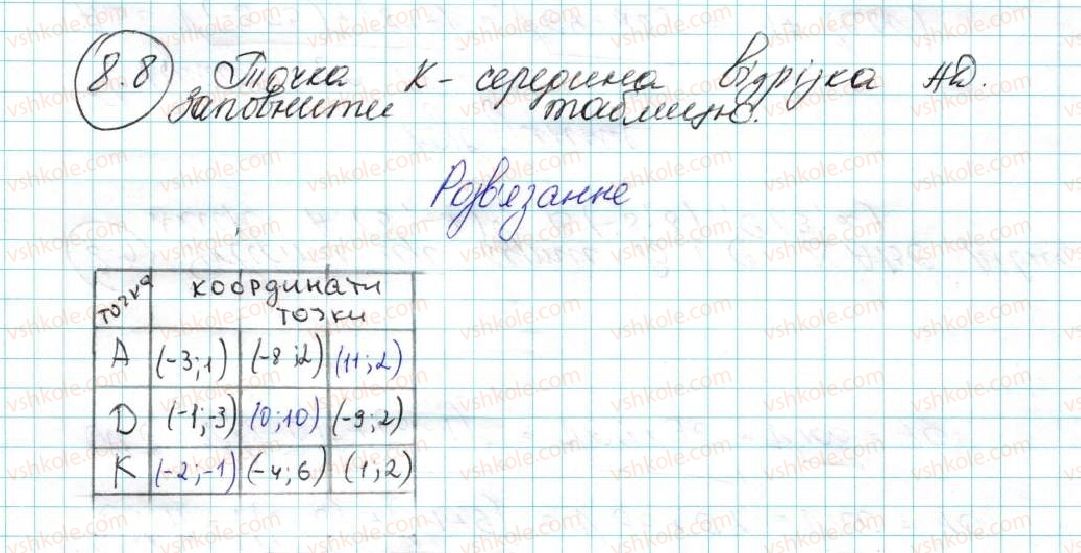 8.8 Точка К - середина відрізка АD.
Заповнити таблицю.
Розв'язання
точка координати точки
А (-3;1) (-8;2) (11;2)
D (-1;-3) (0;10) (-9;2)
К (-2;-1) (-4;6) (1;2)
vshkole.com